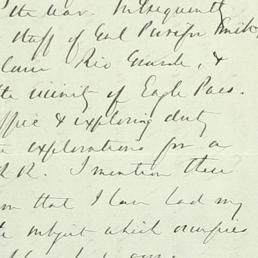 the war. Subsequently
staff of Genl Persifor Smith,
Rio Grande, &
the vicinity of Eagle Pass.
office & exploring duty
explorations for a
R.R. I mention these
that I have had my
subject which occupies